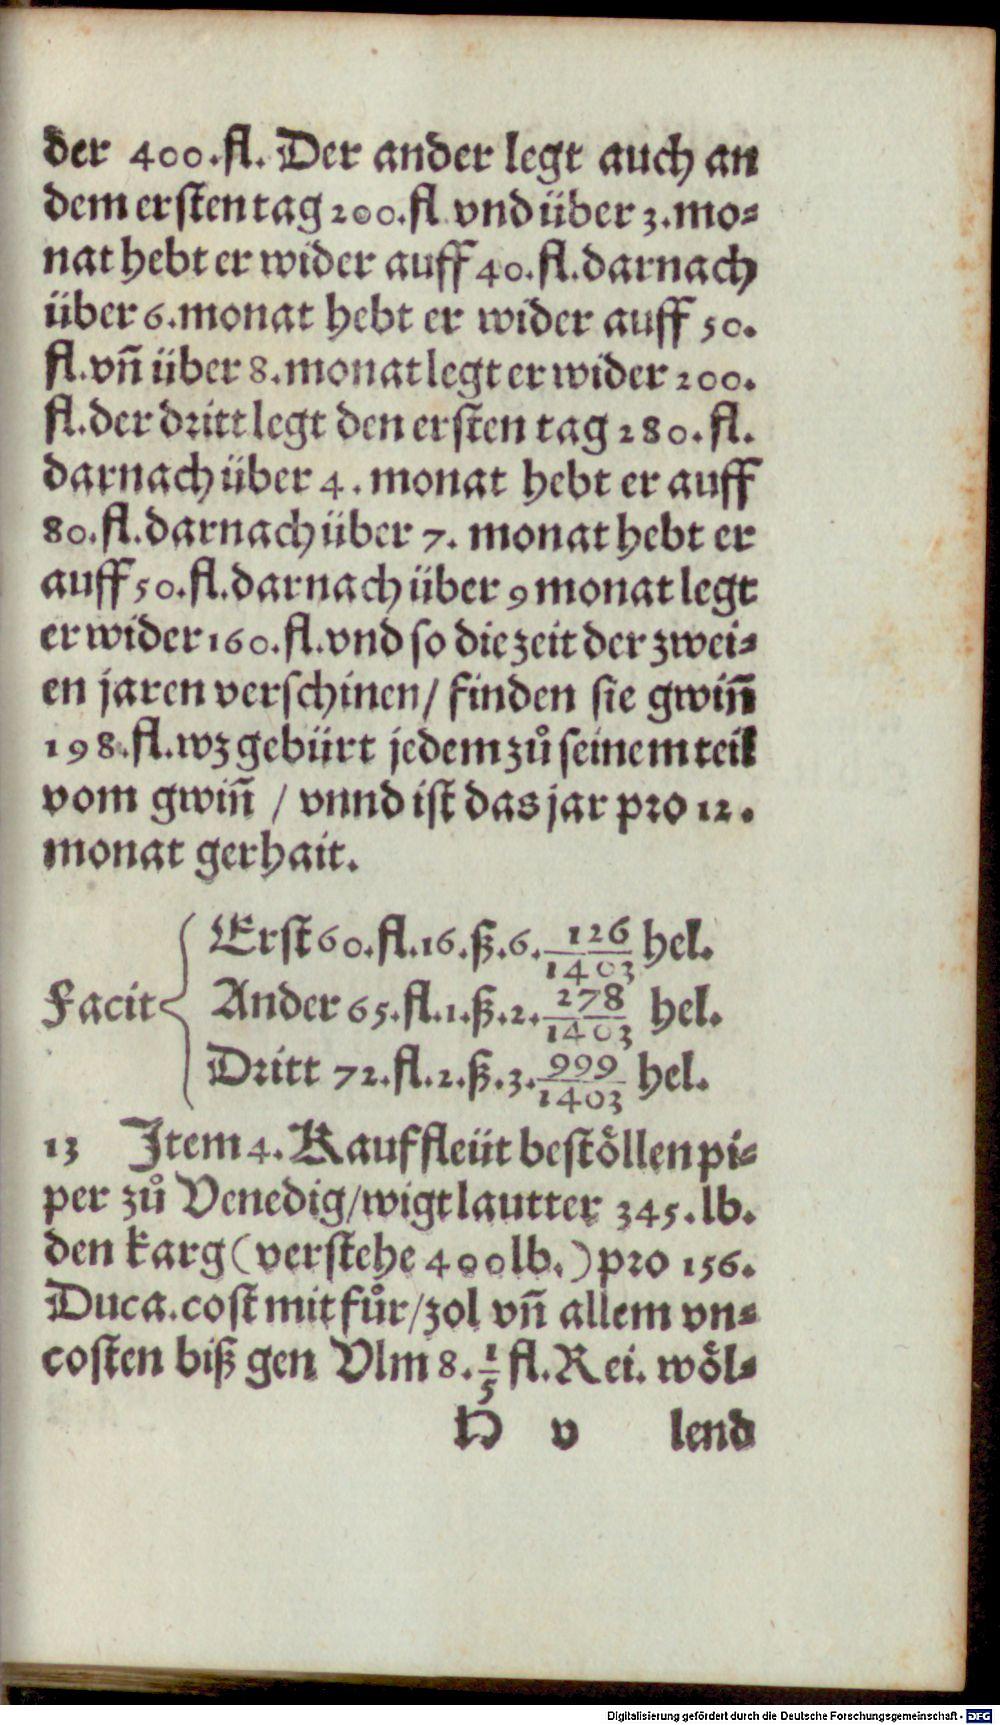 der 400.fl. Der ander legt auch an
dem ersten tag 200.fl vnd über 3.mo⸗
nat hebt er wider auff 40.fl.darnach
über 6.monat hebt er wider auff 50.
fl.vñ über 8.monat legt er wider 200.
fl.der dritt legt den ersten tag 280.fl.
darnach über 4. monat hebt er auff
80.fl.darnach über 7. monat hebt er
auff 50.fl.darnach über 9 monat legt
er wider 160.fl.vnd so die zeit der zwei⸗
en jaren verschinen/ finden sie gwiñ
198.fl.wz gebürt jedem zů seinem teil
vom gwiñ / vnnd ist das jar pro 12.
monat gerhait.
Erst 60.fl.16.ß.6. 126/1403 hel.
Facit Ander 65.fl.1.ß.2. 278/1403 hel.
Dritt 72.fl.2.ß.3. 999/1403 hel.
13 Item 4. Kauffleüt bestöllen pi⸗
per zů Venedig/wigt lautter 345.lb.
den karg (verstehe 400 lb.) pro 156.
Duca.cost mit fůr/zol vñ allem vn⸗
costen biß gen Vlm 8. 1/5 fl.Rei. wöl⸗
H v lend
Digitalisierung gefördert durch die Deutsche Forschungsgemeinschaft - DFG